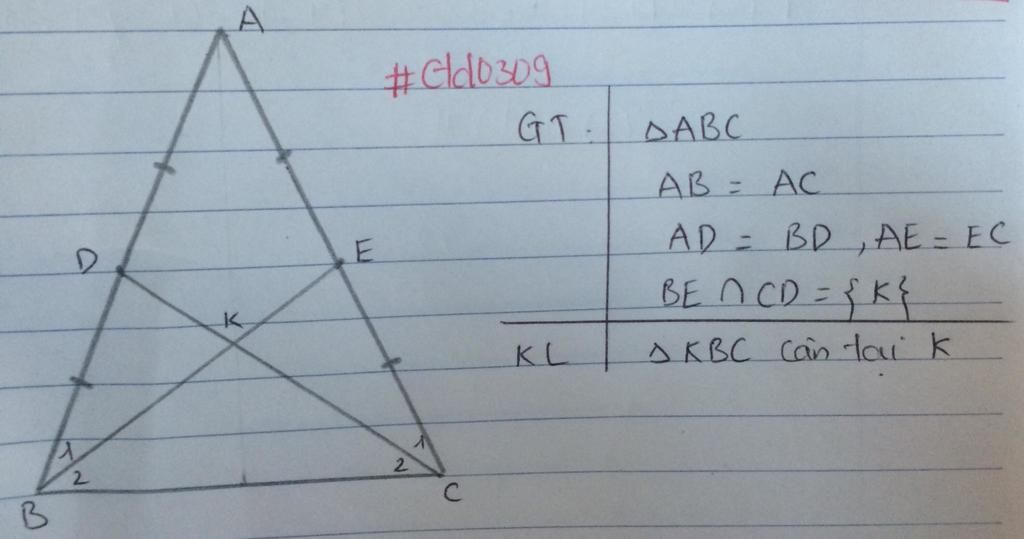 A
#Gld0309
GT. ΔABC
AB = AC
D E AD = BD , AE = EC
K BE ∩ CD = {K}
KL ΔKBC cân tại K
1 2 2 1
B C